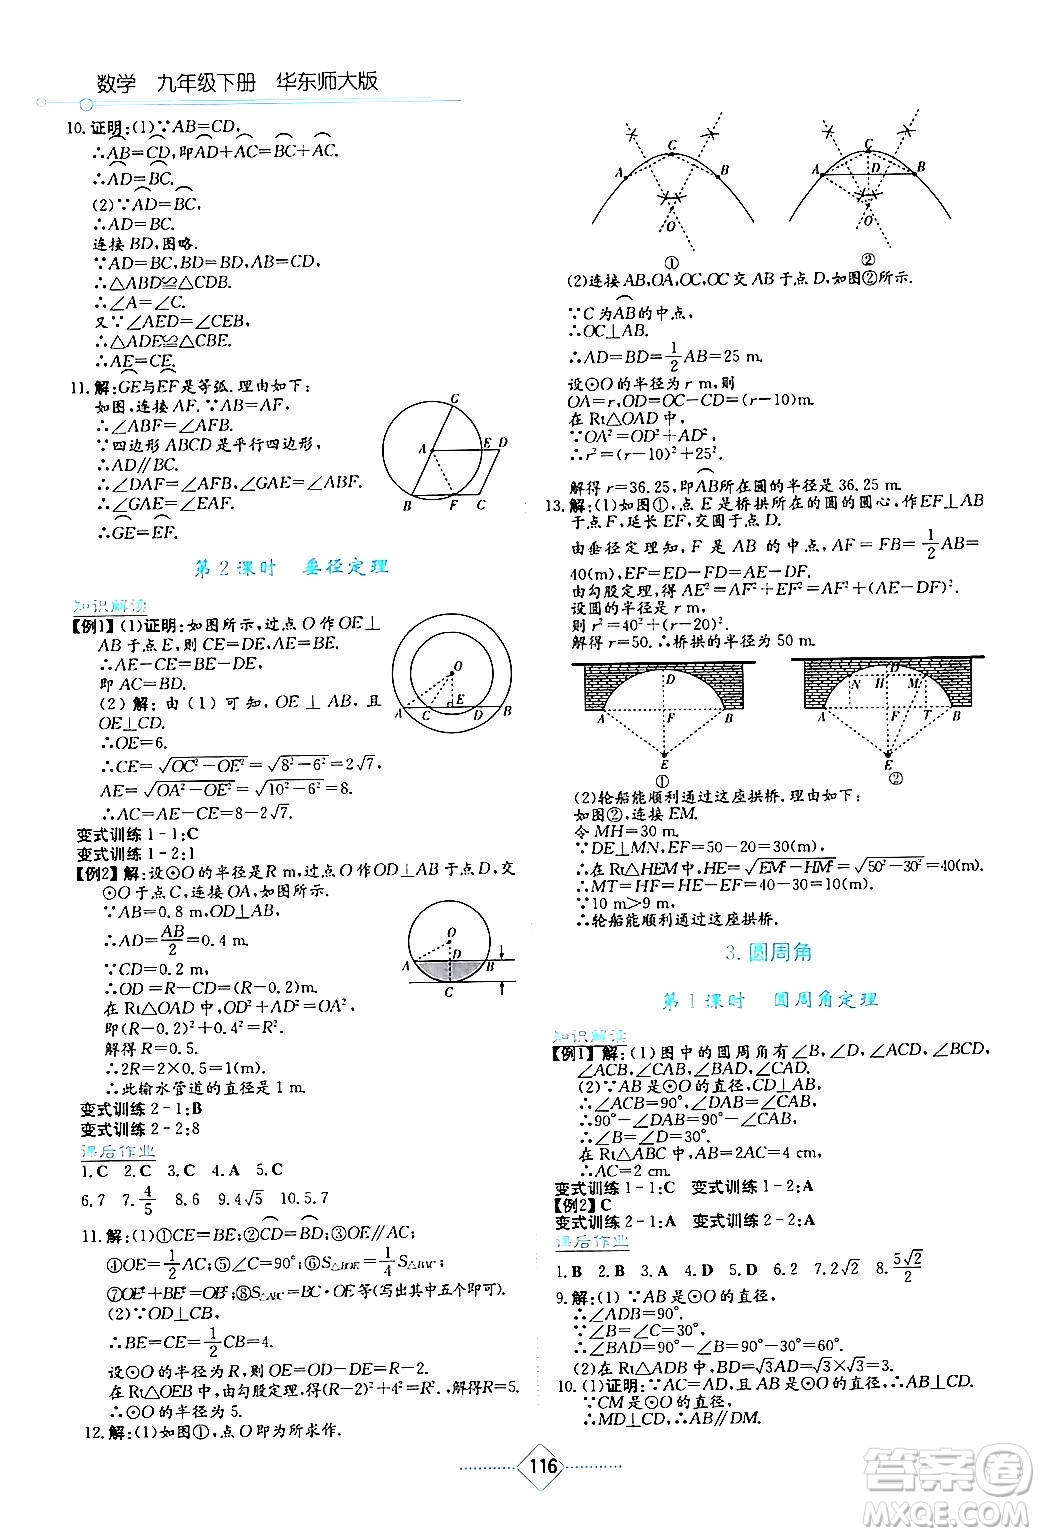 数学 九年级下册 华东师大版
10.证明:(1)∵AB=CD,
∴AB=CD,即AD+AC=BC+AC.
∴AD=BC.
(2)∵AD=BC,
∴AD=BC.
连接BD,图略.
∵AD=BC,BD=BD,AB=CD,
∴△ABD≌△CDB.
∴∠A=∠C.
又∵∠AED=∠CEB,
∴△ADE≌△CBE.
∴AE=CE.
11.解:GE与EF是等弧.理由如下:
如图,连接AF.∵AB=AF,
∴∠ABF=∠AFB.
∵四边形ABCD是平行四边形,
∴AD∥BC.
∴∠DAF=∠AFB,∠GAE=∠ABF.
∴∠GAE=∠EAF.
∴GE=EF.
G A E D B F C
第2课时 垂径定理
知识解读
【例1】(1)证明:如图所示,过点O作OE⊥
AB于点E,则CE=DE,AE=BE.
∴AE-CE=BE-DE,
即AC=BD.
(2)解:由(1)可知,OE⊥AB,且
OE⊥CD.
∴OE=6.
∴CE=√(OC²-OE²)=√(8²-6²)=2√7,
AE=√(OA²-OE²)=√(10²-6²)=8.
∴AC=AE-CE=8-2√7.
O A C E D B
变式训练1-1:C
变式训练1-2:1
【例2】解:设⊙O的半径是R m,过点O作OD⊥AB于点D,交
⊙O于点C,连接OA,如图所示.
∵AB=0.8 m,OD⊥AB,
∴AD=AB/2=0.4 m.
∵CD=0.2 m,
∴OD=R-CD=(R-0.2)m.
在Rt△OAD中,OD²+AD²=OA²,
即(R-0.2)²+0.4²=R².
解得R=0.5.
∴2R=2×0.5=1(m).
∴此输水管道的直径是1 m.
O A D B C
变式训练2-1:B
变式训练2-2:8
课后作业
1.C 2.C 3.C 4.A 5.C
6.7 7.4/5 8.6 9.4√5 10.5.7
11.解:(1)①CE=BE;②CD=BD;③OE∥AC;
④OE=1/2AC;⑤∠C=90°;⑥S△BOE=1/4S△BAC;
⑦OE²+BE²=OB²;⑧S△ABC=BC·OE等(写出其中五个即可).
(2)∵OD⊥CB,
∴BE=CE=1/2CB=4.
设⊙O的半径为R,则OE=OD-DE=R-2.
在Rt△OEB中,由勾股定理,得R²=(R-2)²+4²,解得R=5.
∴⊙O的半径为5.
12.解:(1)如图①,点O即为所求作.
A C B O ①
A C D B O ②
(2)连接AB,OA,OC,OC交AB于点D,如图②所示.
∵C为AB的中点,
∴OC⊥AB.
∴AD=BD=1/2AB=25 m.
设⊙O的半径为r m,则
OA=r,OD=OC-CD=(r-10)m.
在Rt△OAD中,
∵OA²=OD²+AD²,
∴r²=(r-10)²+25².
解得r=36.25,即AB所在圆的半径是36.25 m.
13.解:(1)如图①,点E是桥拱所在的圆的圆心,作EF⊥AB
于点F,延长EF,交圆于点D.
由垂径定理知,F是AB的中点,AF=FB=1/2AB=
40(m),EF=ED-FD=AE-DF.
由勾股定理,得AE²=AF²+EF²=AF²+(AE-DF)².
设圆的半径是r m,
则r²=40²+(r-20)².
解得r=50.∴桥拱的半径为50 m.
D A F B E ①
D N H M A F T B E ②
(2)轮船能顺利通过这座拱桥.理由如下:
如图②,连接EM.
令MH=30 m.
∵DE⊥MN,EF=50-20=30(m),
∴在Rt△HEM中,HE=√(EM²-HM²)=√(50²-30²)=40(m).
∴MT=HF=HE-EF=40-30=10(m).
∵10 m>9 m,
∴轮船能顺利通过这座拱桥.
3.圆周角
第1课时 圆周角定理
知识解读
【例1】解:(1)图中的圆周角有∠B,∠D,∠ACD,∠BCD,
∠ACB,∠CAB,∠BAD,∠CAD.
(2)∵AB是⊙O的直径,
∴∠ACB=90°,∠ADB=90°.
∴90°-∠DAB=90°-2∠DAB.
∴∠DAB=30°.
∴∠B=30°.
在Rt△ABC中,AB=2AC=4 cm,
∴AC=2 cm.
变式训练1-1:C 变式训练1-2:A
【例2】C
变式训练2-1:A 变式训练2-2:A
课后作业
1.B 2.B 3.A 4.D 5.D 6.2 7.2√2 8.5√2/2
9.解:(1)∵AB是⊙O的直径,
∴∠ADB=90°.
∵∠B=∠C=30°,
∴∠BAD=90°-∠B=90°-30°=60°.
(2)在Rt△ADB中,BD=√3AD=√3×√3=3.
10.(1)证明:∵AC=AD,且AB是⊙O的直径,∴AB⊥CD.
∵CM是⊙O的直径,
∴MD⊥CD.∴AB∥DM.
116
答案卷
MXQE.COM